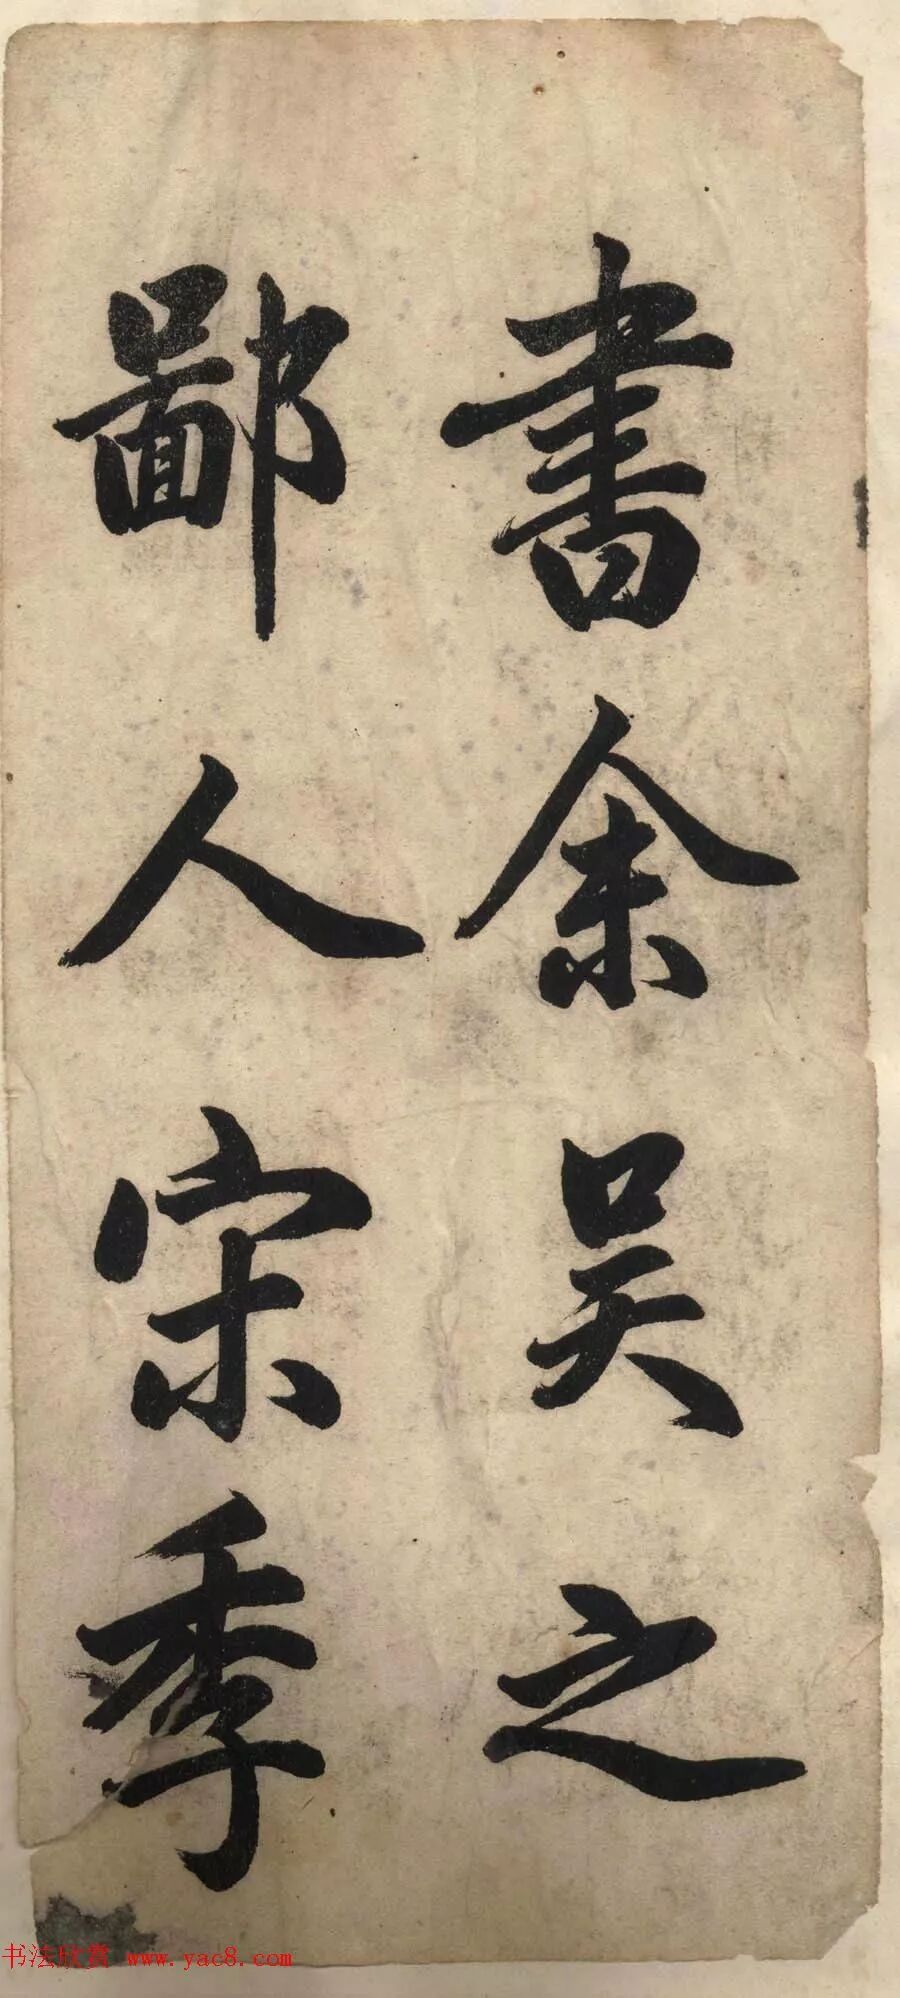 書余吴之
鄙人宋季
书法欣赏 www.yac8.com